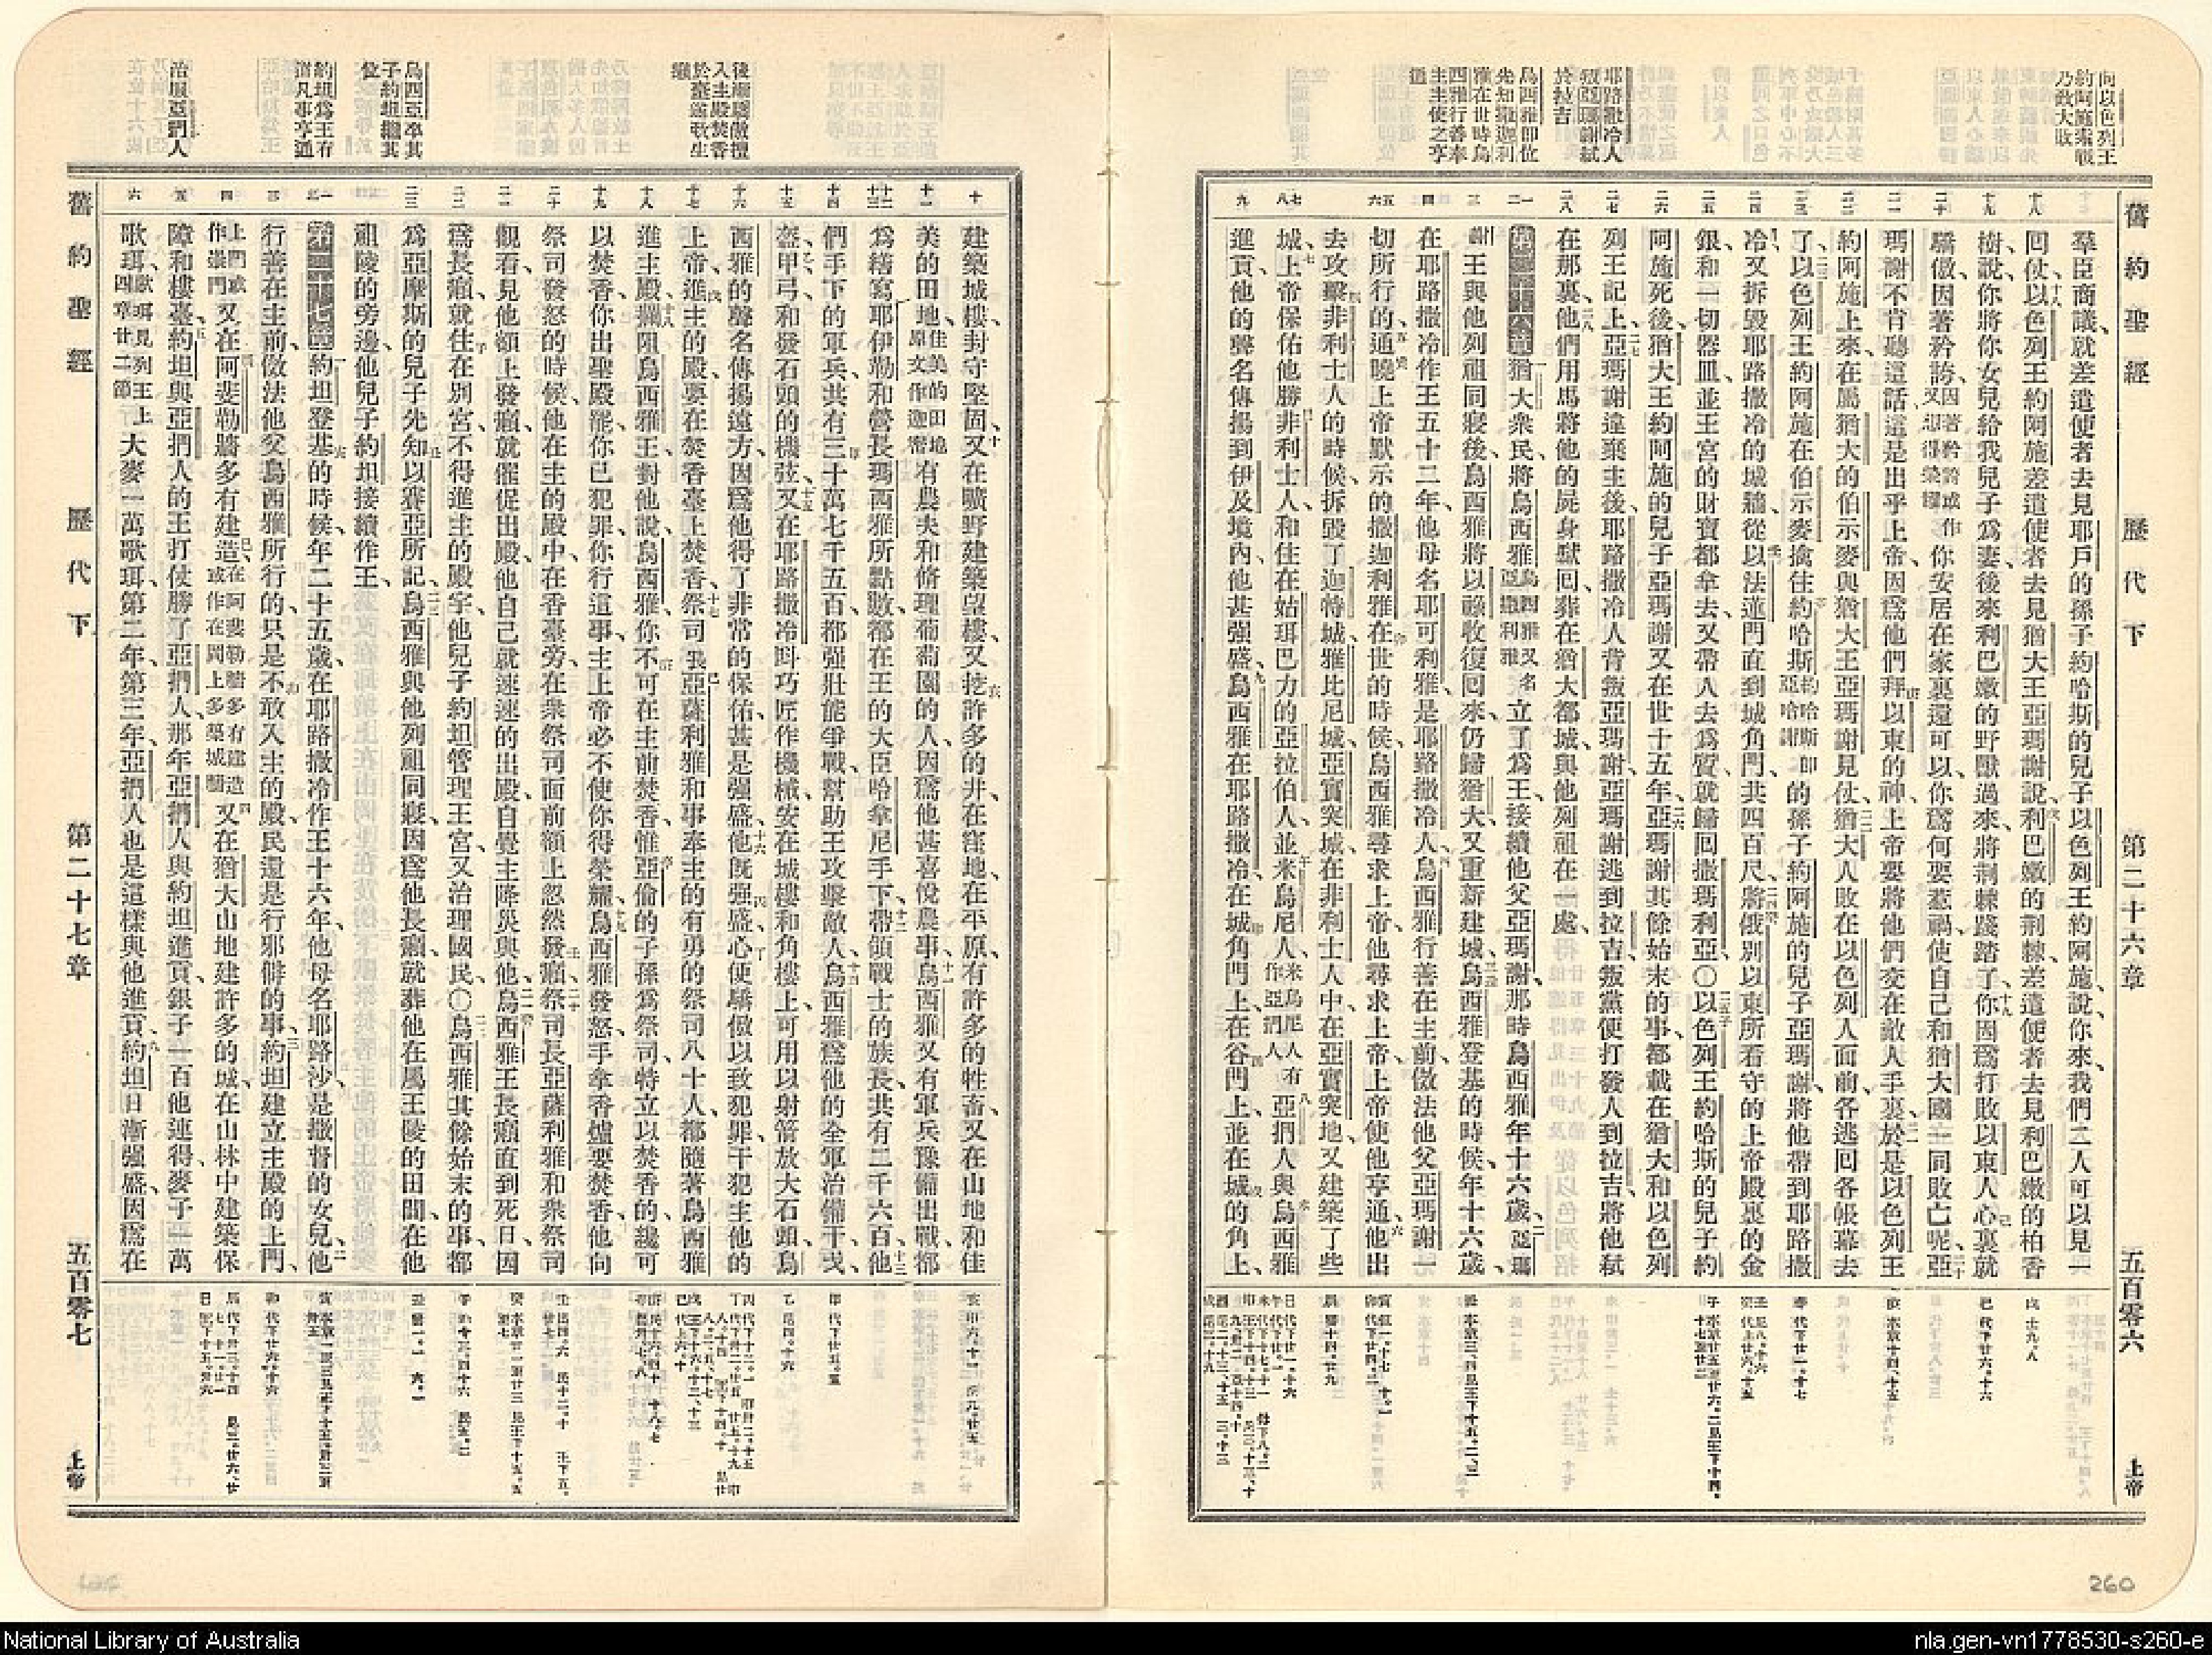 向以色列王
約阿施索戰
乃致大敗
耶路撒冷人
叛亞瑪謝弑
於拉吉
烏西雅卽位
先知撒迦利
雅在世時烏
西雅行善奉
主主使之亨
通
舊約聖經 歷代下 第二十六章 五百零六 上帝
羣臣商議、就差遣使者去見耶戶的孫子約哈斯的兒子以色列王約阿施、說、你來、我們二人可以見一
回仗、以色列王約阿施差遣使者去見猶大王亞瑪謝說、利巴嫩的荆棘、差遣使者去見利巴嫩的柏香
樹、說、你將你女兒給我兒子爲妻、後來利巴嫩的野獸過來、將荆棘踐踏了、你因爲打敗以東人、心裏就
驕傲、因著矜誇、因著矜誇或作又想得榮耀你安居在家裏還可以、你爲何要惹禍、使自己和猶大國一同敗亡呢、亞
瑪謝不肯聽這話、這是出乎上帝、因爲他們拜以東的神、上帝要將他們交在敵人手裏、於是以色列王
約阿施上來、在屬猶大的伯示麥與猶大王亞瑪謝見仗、猶大人敗在以色列人面前、各逃回各帳幕去
了、以色列王約阿施在伯示麥擒住約哈斯約哈斯卽亞哈謝的孫子約阿施的兒子亞瑪謝、將他帶到耶路撒
冷、又拆毀耶路撒冷的城牆、從以法蓮門直到城角門、共四百尺、將俄別以東所看守的上帝殿裏的金
銀、和一切器皿、並王宮的財寶都拿去、又帶人去爲質、就歸回撒瑪利亞○以色列王約哈斯的兒子約
阿施死後、猶大王約阿施的兒子亞瑪謝又在世十五年、亞瑪謝其餘始末的事、都載在猶大和以色列
列王記上、亞瑪謝違棄主後、耶路撒冷人背叛亞瑪謝、亞瑪謝逃到拉吉、叛黨便打發人到拉吉、將他弑
在那裏、他們用馬將他的屍身馱回、葬在猶大都城、與他列祖在一處、
第二十六章 猶大衆民將烏西雅烏西雅又名亞撒利雅立了爲王、接續他父亞瑪謝、那時烏西雅年十六歲、亞瑪
謝王與他列祖同寢後、烏西雅將以祿收復回來、仍歸猶大、又重新建城、烏西雅登基的時候、年十六歲、
在耶路撒冷作王五十二年、他母名耶可利雅、是耶路撒冷人、烏西雅行善在主前、傚法他父亞瑪謝一
切所行的、通曉上帝默示的撒迦利雅在世的時候、烏西雅尋求上帝、他尋求上帝、上帝使他亨通、他出
去攻擊非利士人的時候、拆毀了迦特城、雅比尼城、亞實突城、在非利士人中、在亞實突地、又建築了些
城、上帝保佑他勝非利士人、和住在姑珥巴力的亞拉伯人、並米烏尼人、米烏尼人有作亞捫人亞捫人與烏西雅
進貢、他的聲名傳揚到伊及境內、他甚强盛、烏西雅在耶路撒冷在城角門上、在谷門上、並在城的角上、
260
後緣驕傲擅
入主殿焚香
於臺遂致生
癩
烏西亞卒其
子約坦繼其
位
約坦爲王有
道凡事亨通
治服亞捫人
建築城樓、封守堅固、又在曠野建築望樓、又挖許多的井、在窪地、在平原、有許多的牲畜、又在山地和佳
美的田地、佳美的田地原文作迦密有農夫和脩理葡萄園的人、因爲他甚喜悅農事、烏西雅又有軍兵豫備出戰、都
爲繕寫耶伊勒和營長瑪西雅所點數、都在王的大臣哈拿尼手下、帶領戰士的族長共有二千六百、他
們手下的軍兵、共有三十萬七千五百、都强壯能爭戰、幫助王攻擊敵人、烏西雅爲他的全軍治備干戈、
盔甲、弓、和發石頭的機弦、又在耶路撒冷叫巧匠作機械、安在城樓和角樓上、可用以射箭放大石頭、烏
西雅的聲名傳揚遠方、因爲他得了非常的保佑、甚是强盛、他旣强盛、心便驕傲、以致犯罪、干犯主他的
上帝、進主的殿、要在焚香臺上焚香、祭司長亞薩利雅和事奉主的有勇的祭司八十人都隨著烏西雅
進主殿、攔阻烏西雅王、對他說、烏西雅、你不可在主前焚香、惟亞倫的子孫爲祭司、特立以焚香的纔可
以焚香、你出聖殿罷、你已犯罪、你行這事、主上帝必不使你得榮耀、烏西雅發怒、手拿香爐要焚香、他向
祭司發怒的時候、他在主的殿中、在香臺旁、在衆祭司面前、額上忽然發癩、祭司長亞薩利雅和衆祭司
觀看、見他額上發癩、就催促出殿、他自己就速速的出殿、自覺主降災與他、烏西雅王長癩直到死日、因
爲長癩、就住在別宮、不得進主的殿宇、他兒子約坦管理王宮、又治理國民○烏西雅其餘始末的事、都
爲亞摩斯的兒子先知以賽亞所記、烏西雅與他列祖同寢、因爲他長癩、就葬他在屬王陵的田間、在他
祖陵的旁邊、他兒子約坦接續作王、
第二十七章 約坦登基的時候、年二十五歲、在耶路撒冷作王十六年、他母名耶路沙、是撒督的女兒、他
行善在主前、傚法他父烏西雅所行的、只是不敢入主的殿、民還是行邪僻的事、約坦建立主殿的上門、
上門或作崇門又在阿斐勒牆多有建造、在阿斐勒牆多有建造或作在岡上多築城牆又在猶大山地建許多的城、在山林中建築保
障和樓臺、約坦與亞捫人的王打仗、勝了亞捫人、那年亞捫人與約坦進貢銀子一百他連得、麥子一萬
歌珥、歌珥見列王上四章廿二節大麥一萬歌珥、第二年、第三年、亞捫人也是這樣與他進貢、約坦日漸强盛、因爲在
舊約聖經 歷代下 第二十七章 五百零七 上帝
National Library of Australia
nla.gen-vn1778530-s260-e